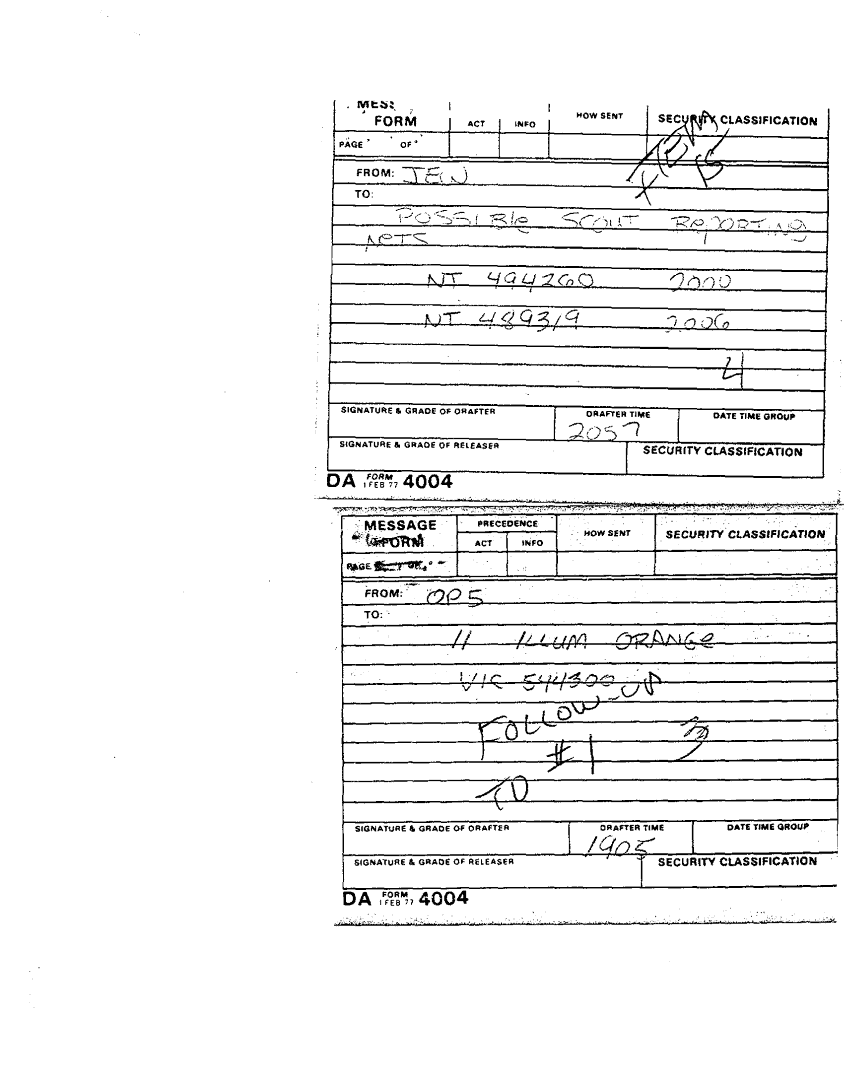 MESS
FORM
ACT
INFO
HOW SENT
SECURITY CLASSIFICATION
PAGE OF
FROM:
TO:
POSSIBLE SCOUT REPORTING
NETS
NT 494260 2000
NT 489319 2006
4
SIGNATURE & GRADE OF DRAFTER
DRAFTER TIME
DATE TIME GROUP
2057
SIGNATURE & GRADE OF RELEASER
SECURITY CLASSIFICATION
DA FORM 1 FEB 77 4004
MESSAGE
FORM
PRECEDENCE
ACT
INFO
HOW SENT
SECURITY CLASSIFICATION
PAGE
FROM: OP5
TO:
11 ILLUM ORANGE
VIC 544300
FOLLOW-UP
#1 3
TO
SIGNATURE & GRADE OF DRAFTER
DRAFTER TIME
DATE TIME GROUP
1905
SIGNATURE & GRADE OF RELEASER
SECURITY CLASSIFICATION
DA FORM 1 FEB 77 4004